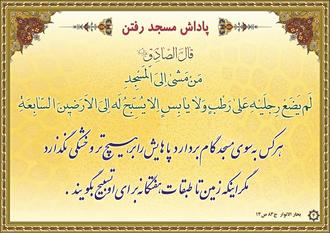 پاداش مسجد رفتن
قالَ الصّادِق
مَن مَشىٰ اِلَى المَسجِدِ
لَم يَضَع رِجلَيهِ عَلىٰ رَطبٍ وَلا يابِسٍ اِلا يُسَبِّحُ لَهُ اِلى الاَرَضينَ السّابِعَةِ
هر کس به سوی مسجد گام بردارد پاهایش را بر هیچ تر و خشکی نگذارد
مگر اینکه زمین تا طبقات هفتگانه برای او تسبیح بگویند .
بحار الانوار ج ۸۳ ص ۱۳